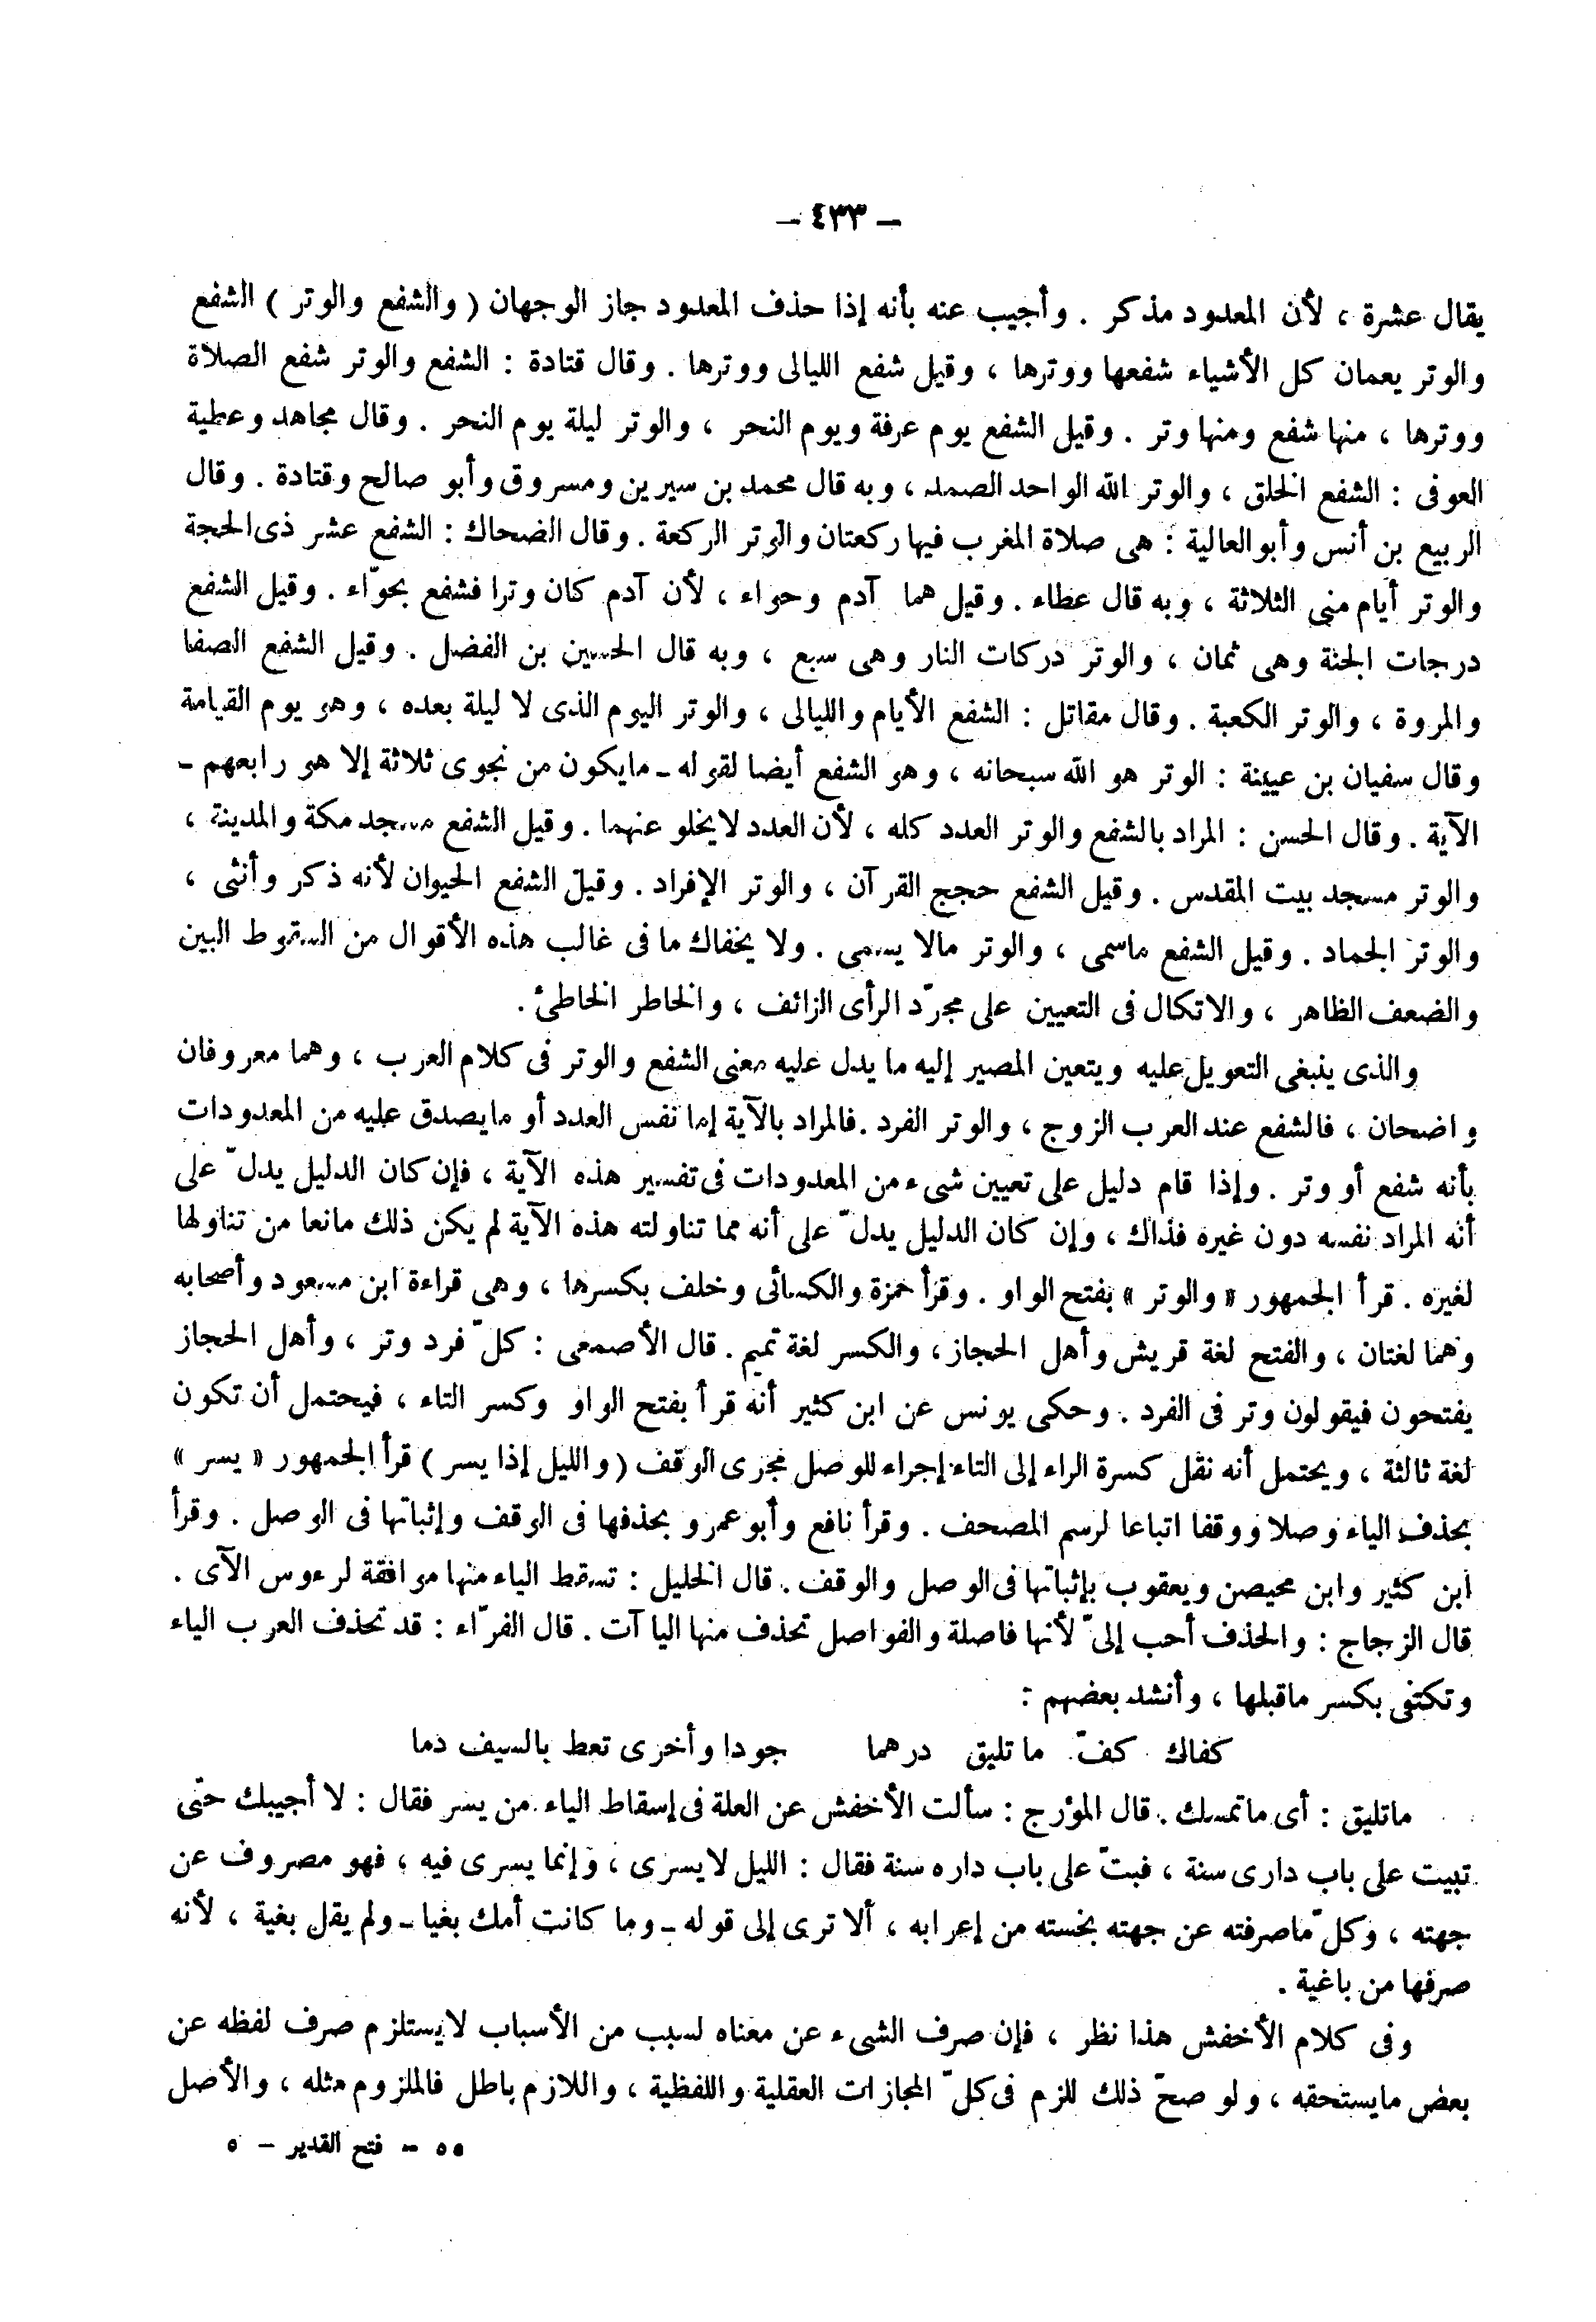 – ٤٣٣ –
يقال عشرة ، لأن المعدود مذكر . وأجيب عنه بأنه إذا حذف المعدود جاز الوجهان ( والشفع والوتر ) الشفع
والوتر يعمان كل الأشياء شفعها ووترها ، وقيل شفع الليالى ووترها . وقال قتادة : الشفع والوتر شفع الصلاة
ووترها ، منها شفع ومنها وتر . وقيل الشفع يوم عرفة ويوم النحر ، والوتر ليلة يوم النحر . وقال مجاهد وعطية
العوفى : الشفع الخلق ، والوتر الله الواحد الصمد ، وبه قال محمد بن سيرين ومسروق وأبو صالح وقتادة . وقال
الربيع بن أنس وأبو العالية : هى صلاة المغرب فيها ركعتان والوتر الركعة . وقال الضحاك : الشفع عشر ذى الحجة
والوتر أيام منى الثلاثة ، وبه قال عطاء . وقيل هما آدم وحواء ، لأن آدم كان وترا فشفع بحوّاء . وقيل الشفع
درجات الجنة وهى ثمان ، والوتر دركات النار وهى سبع ، وبه قال الحسين بن الفضل . وقيل الشفع الصفا
والمروة ، والوتر الكعبة . وقال مقاتل : الشفع الأيام والليالى ، والوتر اليوم الذى لا ليلة بعده ، وهو يوم القيامة
وقال سفيان بن عيينة : الوتر هو الله سبحانه ، وهو الشفع أيضا لقوله ـ مايكون من نجوى ثلاثة إلا هو رابعهم ـ
الآية . وقال الحسن : المراد بالشفع والوتر العدد كله ، لأن العدد لايخلو عنهما . وقيل الشفع مسجد مكة والمدينة ،
والوتر مسجد بيت المقدس . وقيل الشفع حجج القرآن ، والوتر الإفراد . وقيل الشفع الحيوان لأنه ذكر وأنثى ،
والوتر الجماد . وقيل الشفع ماسمى ، والوتر مالا يسمى . ولا يخفاك ما فى غالب هذه الأقوال من السقوط البين
والضعف الظاهر ، والاتكال فى التعيين على مجرّد الرأى الزائف ، والخاطر الخاطئ .
والذى ينبغى التعويل عليه ويتعين المصير إليه ما يدل عليه معنى الشفع والوتر فى كلام العرب ، وهما معروفان
واضحان ، فالشفع عند العرب الزوج ، والوتر الفرد . فالمراد بالآية إما نفس العدد أو مايصدق عليه من المعدودات
بأنه شفع أو وتر . وإذا قام دليل على تعيين شىء من المعدودات فى تفسير هذه الآية ، فإن كان الدليل يدلّ على
أنه المراد نفسه دون غيره فذاك ، وإن كان الدليل يدلّ على أنه مما تناولته هذه الآية لم يكن ذلك مانعا من تناولها
لغيره . قرأ الجمهور « والوتر » بفتح الواو . وقرأ حمزة والكسائى وخلف بكسرها ، وهى قراءة ابن مسعود وأصحابه
وهما لغتان ، والفتح لغة قريش وأهل الحجاز ، والكسر لغة تميم . قال الأصمعى : كلّ فرد وتر ، وأهل الحجاز
يفتحون فيقولون وتر فى الفرد . وحكى يونس عن ابن كثير أنه قرأ بفتح الواو وكسر التاء ، فيحتمل أن تكون
لغة ثالثة ، ويحتمل أنه نقل كسرة الراء إلى التاء إجراء للوصل مجرى الوقف ( والليل إذا يسر ) قرأ الجمهور « يسر »
بحذف الياء وصلا ووقفا اتباعا لرسم المصحف . وقرأ نافع وأبو عمرو بحذفها فى الوقف وإثباتها فى الوصل . وقرأ
ابن كثير وابن محيصن ويعقوب بإثباتها فى الوصل والوقف . قال الخليل : تسقط الياء منها موافقة لرءوس الآى .
قال الزجاج : والحذف أحب إلىّ لأنها فاصلة والفواصل تحذف منها الياآت . قال الفرّاء : قد تحذف العرب الياء
وتكتفى بكسر ماقبلها ، وأنشد بعضهم :
كفاك كفّ ما تليق درهما جودا وأخرى تعط بالسيف دما
ماتليق : أى ماتمسك . قال المؤرج : سألت الأخفش عن العلة فى إسقاط الياء من يسر فقال : لا أجيبك حتّى
تبيت على باب دارى سنة ، فبتّ على باب داره سنة فقال : الليل لايسرى ، وإنما يسرى فيه ، فهو مصروف عن
جهته ، وكلّ ماصرفته عن جهته بخسته من إعرابه ، ألا ترى إلى قوله ـ وما كانت أمك بغيا ـ ولم يقل بغية ، لأنه
صرفها من باغية .
وفى كلام الأخفش هذا نظر ، فإن صرف الشىء عن معناه لسبب من الأسباب لايستلزم صرف لفظه عن
بعض مايستحقه ، ولو صحّ ذلك للزم فى كلّ المجازات العقلية واللفظية ، واللازم باطل فالملزوم مثله ، والأصل
٥٥ – فتح القدير – ٥